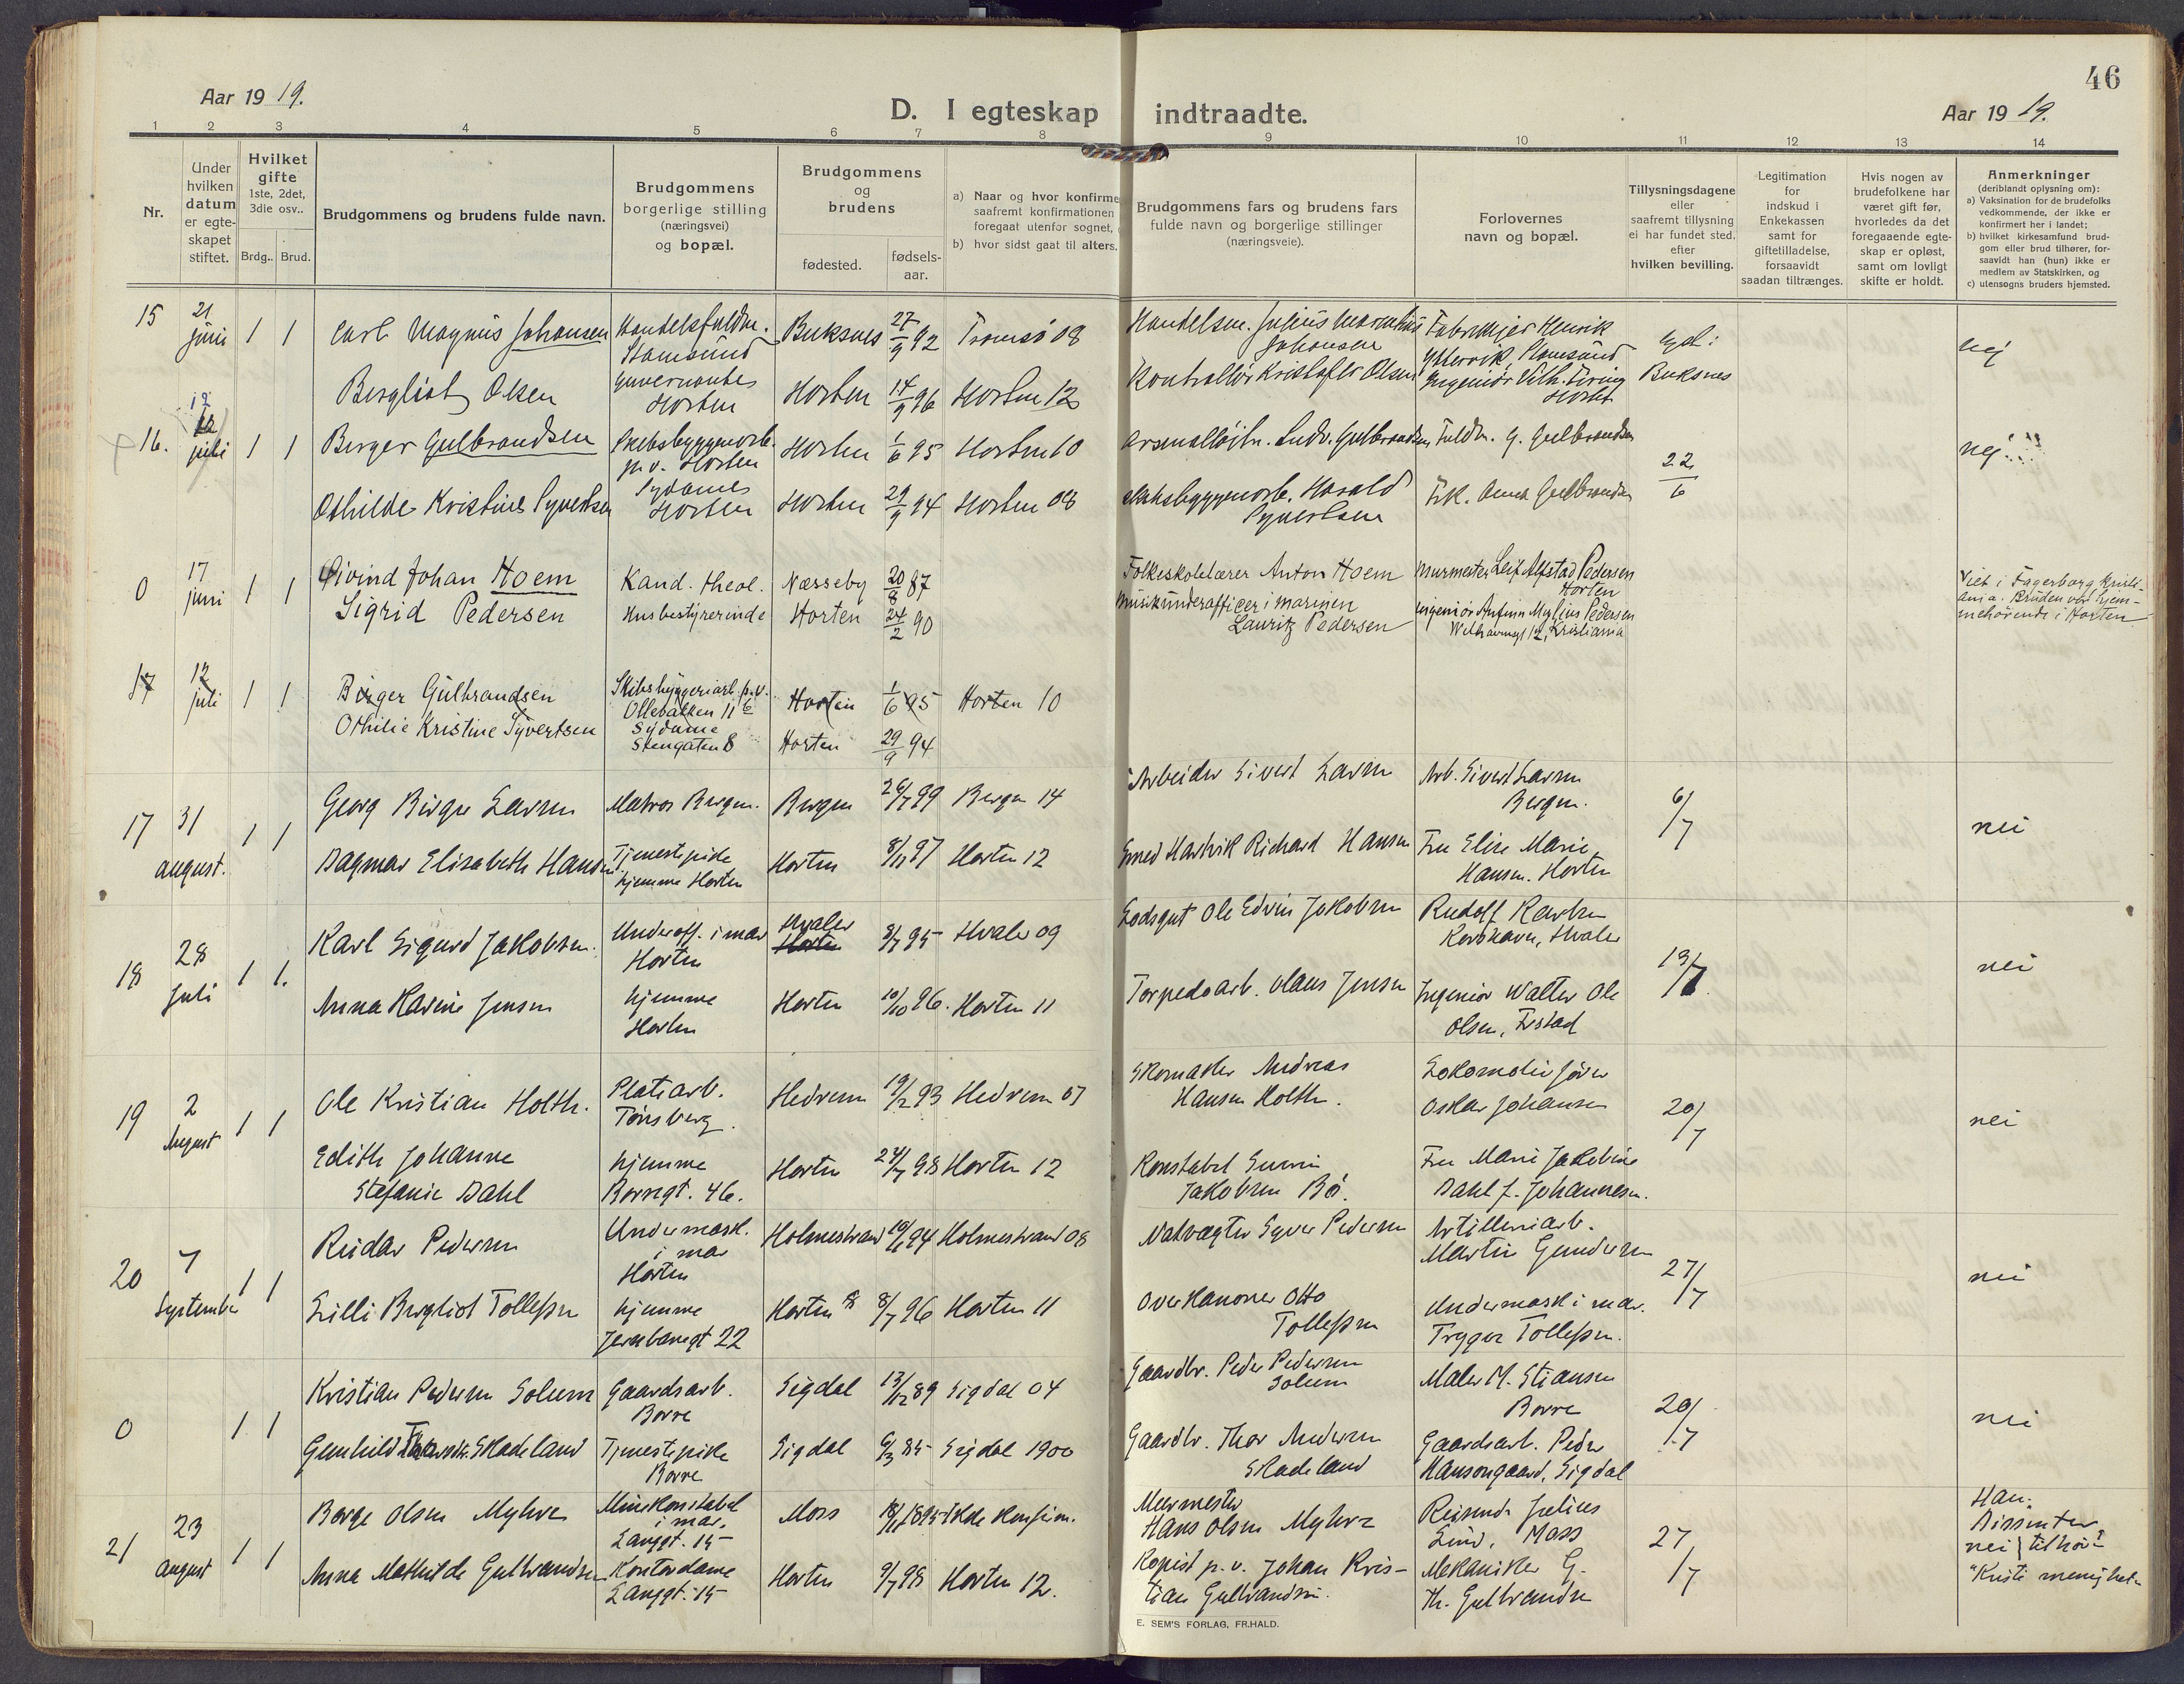 46
Aar 1919.
D. I egteskap indtraadte.
Aar 1919.
1 2 3 4 5 6 7 8 9 10 11 12 13 14
Nr.
Under hvilken datum er egteskapet stiftet.
Hvilket gifte 1ste, 2det, 3die osv..
Brdg.. Brud.
Brudgommens og brudens fulde navn.
Brudgommens borgerlige stilling (næringsvei) og bopæl.
Brudgommens og brudens
fødested.
fødselsaar.
a) Naar og hvor konfirme
saafremt konfirmationen
foregaat utenfor sognet,
b) hvor sidst gaat til alters.
Brudgommens fars og brudens fars fulde navn og borgerlige stillinger (næringsveie).
Forlovernes navn og bopæl.
Tillysningsdagene eller saafremt tillysning ei har fundet sted. efter hvilken bevilling.
Legitimation for indskud i Enkekassen samt for giftetilladelse, forsaavidt saadan tiltrænges.
Hvis nogen av brudefolkene har været gift før, hvorledes da det foregaaende egteskap er opløst, samt om lovligt skifte er holdt.
Anmerkninger
(deriblandt oplysning om):
a) Vaksination for de brudefolks vedkommende, der ikke er konfirmert her i landet;
b) hvilket kirkesamfund brudgom eller brud tilhører, forsaavidt han (hun) ikke er medlem av Statskirken, og
c) utensogns bruders hjemsted.
15 21 juni 1 1 Carl Magnus Johansen Handelsfuldm. Stamsund Buksnes 27/9 92 Tromsö 08 Handelsm. Julius Johansen Fabrikkejer Henrik Stamsund Buksnes nej
Bergliot Olsen Guvernantes Horten Horten 14/9 96 Horten 12 Kontrollör Kristofer Olsen Ingeniör Vilh. Horten
16. 12 juli 1 1 Berger Gulbrandsen Skibsbyggerarb. p.v. Horten Horten 1/6 95 Horten 10 Arsenalløitn. Ludv. Gulbrandsen Fuldm. G. Gulbrandsen 22/6 nej
Othilde Kristine Syvertsen Sydames Horten Horten 29/9 94 Horten 08 Skibsbyggerarb. Harald Syvertsen Frk. Anna Gulbrandsen
0 17 juni 1 1 Øivind Johan Hoem Kand. theol. Næsseby 20/8 87 Folkeskolelærer Anton Hoem Murmester Leif Alfstad Pedersen Horten Viet i Fagerborg Kristiania. Bruden var hjemmehörende i Horten
Sigrid Pedersen Husbestyrerinde Horten 24/2 90 Musikunderofficer i marinen Lauritz Pedersen Ingeniör Anton Mylius Pedersen Kristiania
17 12 juli 1 1 Birger Gulbrandsen Skibsbyggeriarb. p.v. Ollebakken 11 Horten 1/6 95 Horten 10
Othilie Kristine Syvertsen Sydame Stengaten 8 Horten 29/9 94
17 31 august. 1 1 Georg Birger Larsen Matros Bergen. Bergen 26/7 99 Bergen 14 Arbeider Sivert Larsen Arb. Sivert Larsen Bergen. 6/7 nei
Dagmar Elisabeth Hansen Tjenestepike hjemme Horten Horten 8/11 97 Horten 12 Smed Hartvik Richard Hansen Fru Elise Marie Hansen. Horten
18 28 Juli 1 1. Karl Sigurd Jakobsen. Underoff. i mar Horten Hvaler Horten 8/7 95 Hvaler 09 Lodsgut Ole Edvin Jakobsen Rudolf Karlsen Hvaler 13/7 nei
Anna Karine Jensen hjemme Horten Horten 10/10 96. Horten 11 Torpedoarb. Olaus Jensen Ingeniør Walter Ole Olsen,
19 2 August 1 1 Ole Kristian Holth. Platearb. Tönsberg. Hedrum 19/2 93 Hedrum 07 Skomaker Andreas Hansen Holth. Lokomotivförer Oskar Johansen 20/7 nei
Edith Johanne Stefanie Dahl hjemme Borregt. 46. Horten 24/7 98 Horten 12 Konstabel Jakobsen Bö. Fru Marie Jakobine Dahl f. Johannesen.
20 7 September 1 1 Reidar Pedersen Undermask. i mar Horten Holmestrand 10/6 94 Holmestrand 08 Natvægter Syver Pedersen Artilleriarb. Martin Gundersen 27/7 nei
Lilli Bergliot Tollefsen hjemme Jernbanegt 22 Horten 8/7 96 Horten 11 Overkanoner Otto Tollefsen Undermask i mar. Trygve Tollefsen.
0 1 1 Kristian Pedersen Solum Gaardsarb. Borre Sigdal 13/12 89 Sigdal 04 Gaardbr. Peder Pedersen Solum Maler M. Stiansen Borre 20/7 nei
Gunhild Skadeland Tjenestepike Borre Sigdal 6/3 85 Sigdal 1900 Gaardbr. Thor Andersen Skadeland Gaardsarb. Peder Hansongaard, Sigdal
21 23 august 1 1 Borge Olsen Myhre Minekonstabel i mar. Langgt. 15 Moss 18/11 1895 Ikke konfirm. Murmester Hans Olsen Myhre Reisende Julius Lund, Moss 27/7 Han: Dissenter nei tilhör "Kristi menighet"
Anna Mathilde Gulbrandsen Kontordame Langgt. 15 Horten 9/7 98 Horten 12. Kopist p.v. Johan Kristian Gulbrandsen. Mekaniker G. Th. Gulbrandsen
E. SEM'S FORLAG, FR.HALD.